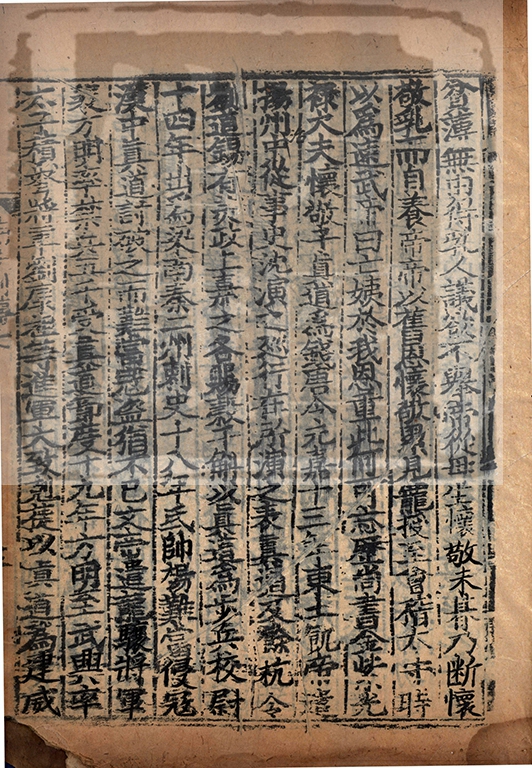 貧薄無由得乳人議欲不舉帝從母生懷敬未朞乃斷懷
敬乳而自養帝帝以舊恩懷敬累見寵授至會稽太守時
以為速武帝曰亡姨於我恩重此何可忘歷尚書金紫光
祿大夫懷敬子真道為錢唐令元嘉十三年東土飢帝遣
揚州中從事史沈演之巡行在所演之表真道及餘杭令
劉道錫有美政上嘉之各賜穀千斛以真道為步兵校尉
十四年出為梁南秦二州刺史十八年氐帥楊難當侵寇
漢中真道討破之而難當寇盜猶不已文帝遣龍驤將軍
裴方明率禁兵五千受真道節度十九年方明至武興率
太子積弩將軍劉康祖等進軍大致克捷以真道為建威